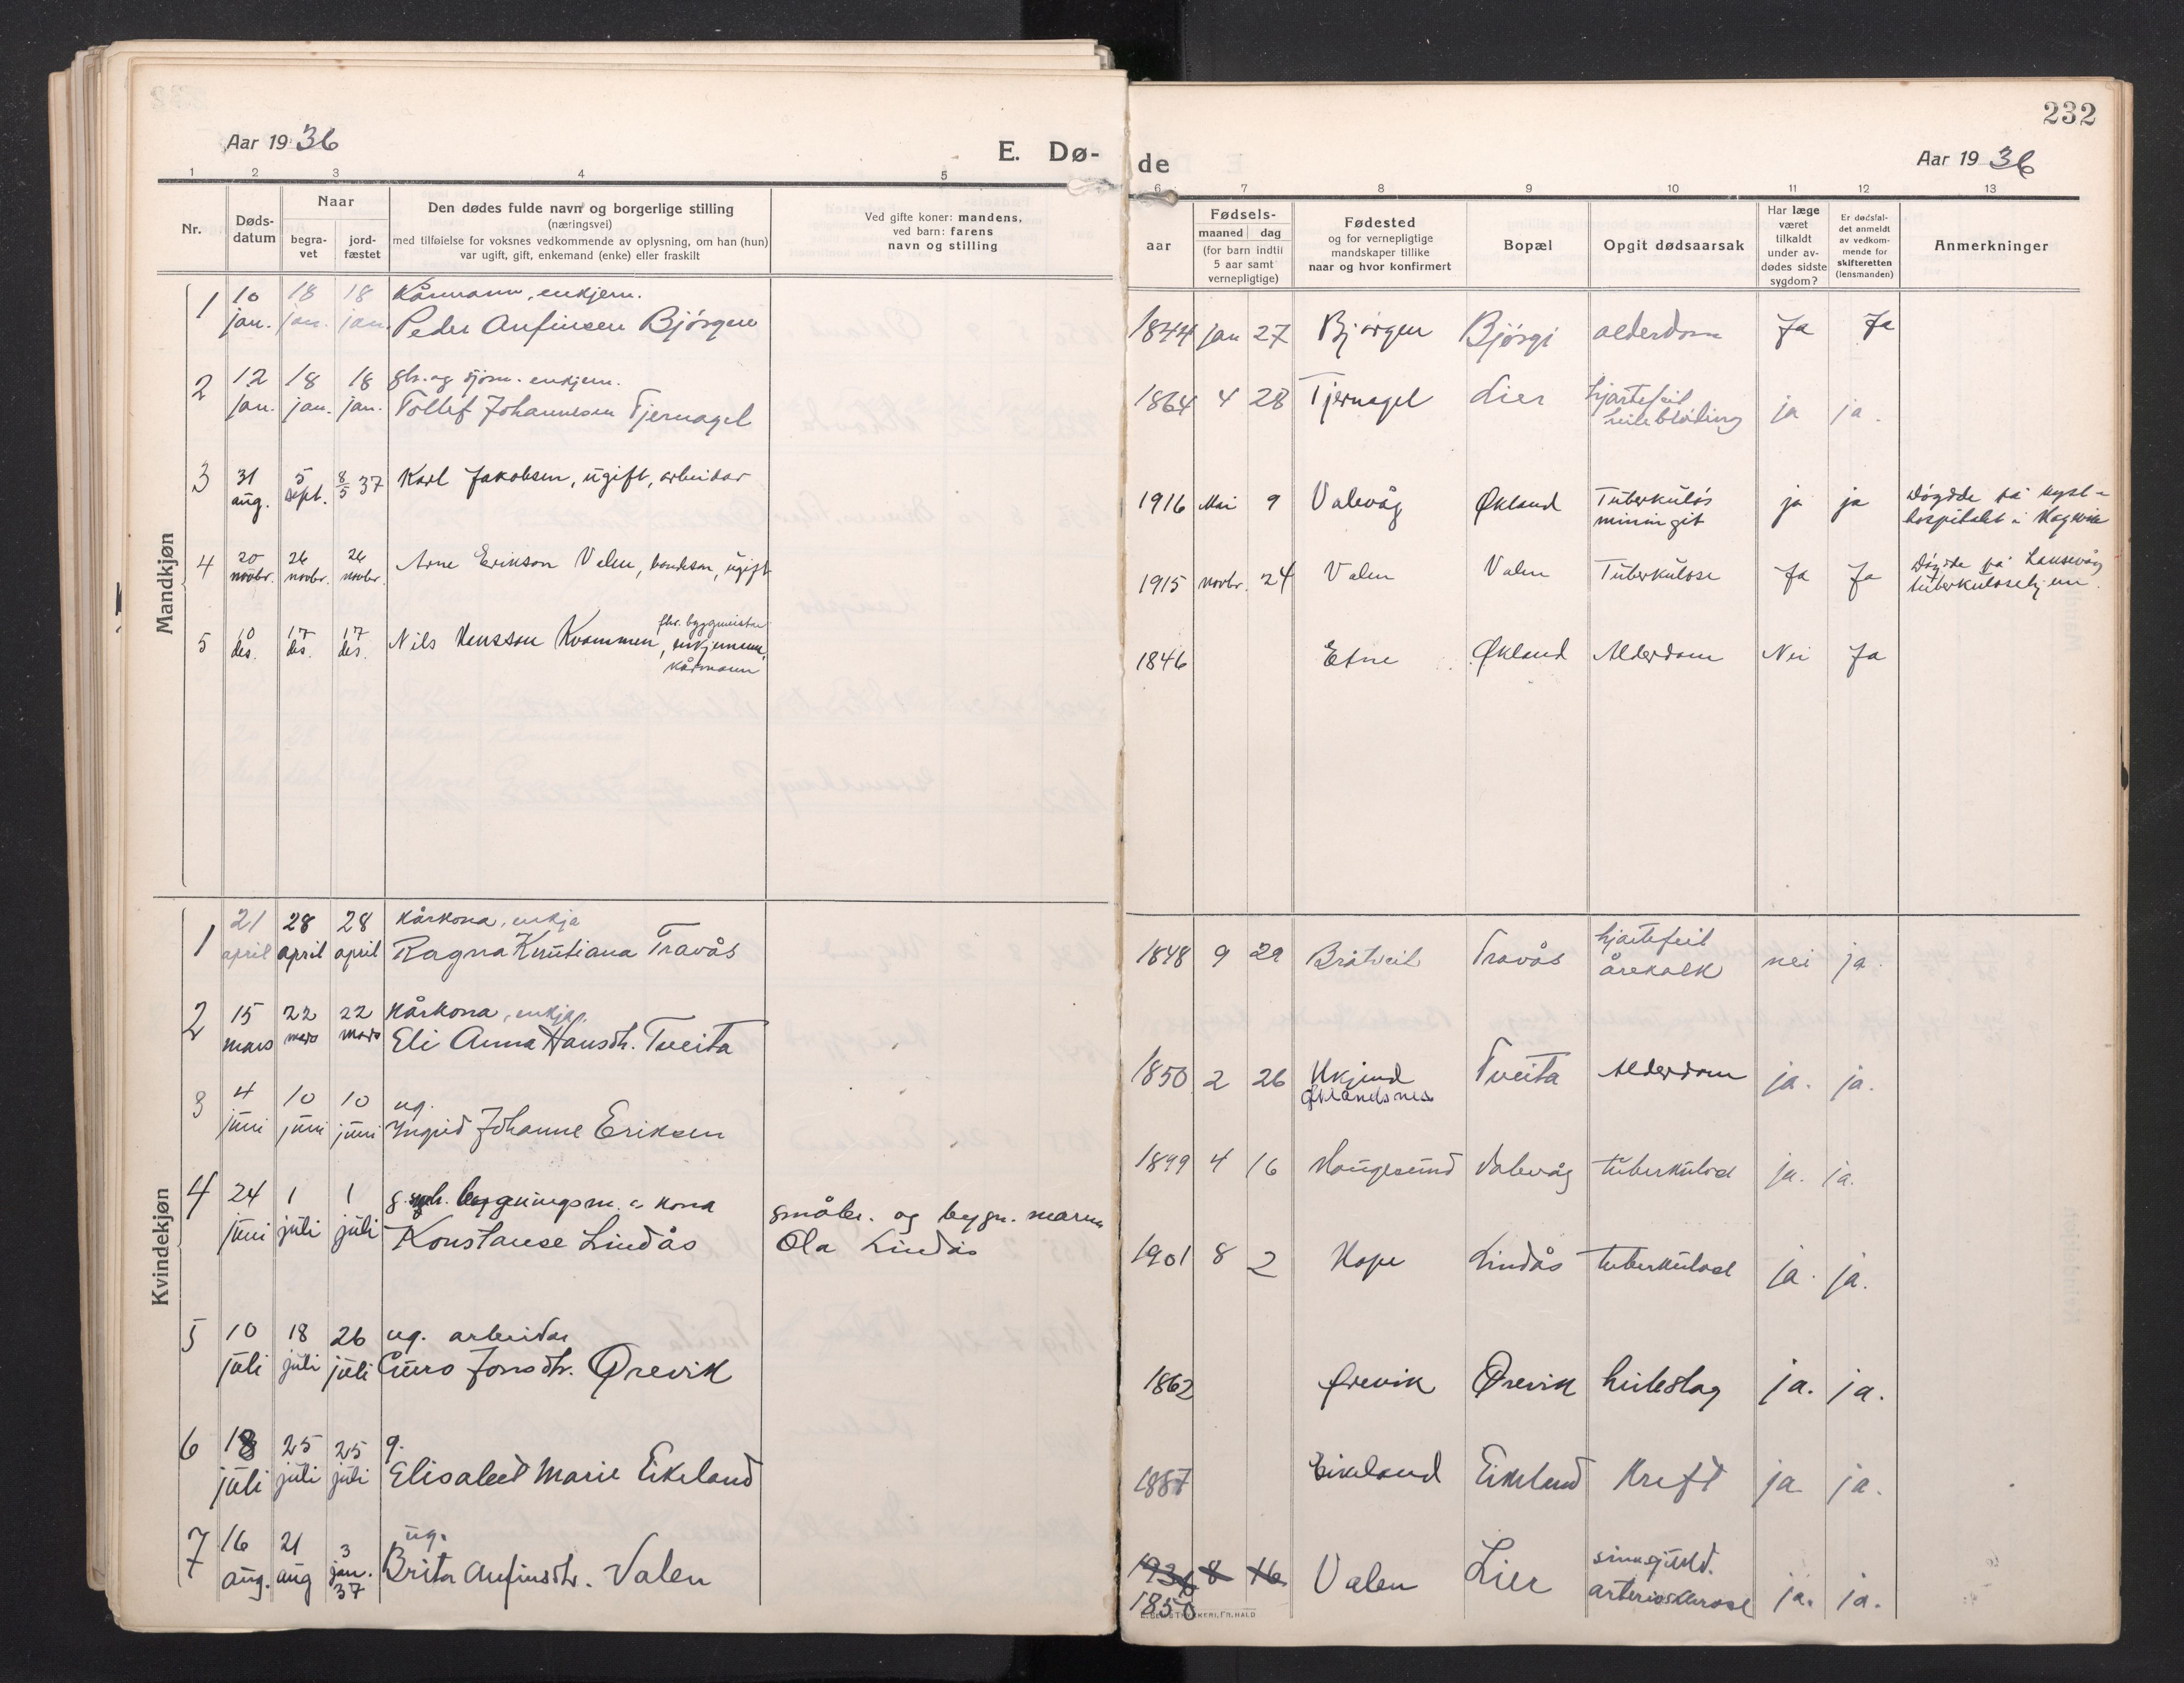 232
Aar 1936
E. Dø-
de
Aar 1936
1 2 3 4 5 6 7 8 9 10 11 12 13
Nr.
Døds-
datum
Naar
begra-
vet
jord-
fæstet
Den dødes fulde navn og borgerlige stilling
(næringsvei)
med tilføielse for voksnes vedkommende av oplysning, om han (hun)
var ugift, gift, enkemand (enke) eller fraskilt
Ved gifte koner: mandens,
ved barn: farens
navn og stilling
Fødsels-
aar
maaned dag
(for barn indtil
5 aar samt
vernepligtige)
Fødested
og for vernepligtige
mandskaper tillike
naar og hvor konfirmert
Bopæl
Opgit dødsaarsak
Har læge
været
tilkaldt
under av-
dødes sidste
sygdom?
Er dødsfal-
det anmeldt
av vedkom-
mende for
skifteretten
(lensmanden)
Anmerkninger
Mandkjøn
1 10 jan. 18 jan. 18 jan. Kårmann, enkjem.
Peder Anfinsen Bjørgen 1844 jan 27 Bjørgen Bjørgi alderdom Ja Ja
2 12 jan. 18 jan. 18 jan. gbr. og sjøm. enkjem.
Tollef Johannesen Tjernagel 1864 4 28 Tjernagel Lier hjartefeil
heilebløding ja ja.
3 31 aug. 5 sept. 8/5 37 Karl Jakobsen, ugift, arbeidar 1916 Mai 9 Valevåg Økland Tuberkuløs
miningit ja ja Døydde på kyst-
hospitalet i Hagavik
4 20 novbr. 26 novbr. 26 novbr. Arne Erikson Valen, bondeson, ugift 1915 novbr. 24 Valen Valen Tuberkulose Ja Ja Døydde på Laksevåg
tuberkuloseheim.
5 10 des. 17 des. 17 des. Nils Hansson Kvammen, fhv. byggmeister
enkjemann,
kårmann 1846 Etne Økland Alderdom Nei Ja
Kvindekjøn
1 21 april 28 april 28 april kårkona, enkja
Ragna Knutiana Travås 1848 9 29 Bråtveit Travås hjartefeil
årekalk nei ja.
2 15 mars 22 mars 22 mars Kårkona, enkja.
Eli Anna Hansdtr. Tveita 1850 2 26 Ukjend
Øklandsnes Tveita Alderdom ja. ja.
3 4 juni 10 juni 10 juni ug.
Ingrid Johanne Eriksen 1899 4 16 Haugesund Valevåg tuberkulose ja. ja.
4 24 juni 1 juli 1 juli g. bygningsm. kona
Konstanse Lindås småbr. og bygn. mann
Ola Lindås 1901 8 2 Hope Lindås tuberkulose ja. ja.
5 10 juli 18 juli 26 juli ug. arbeidar
Guro Jonsdtr. Ørevik 1862 Ørevik Ørevik heileslag ja. ja.
6 18 juli 25 juli 25 juli g.
Elisabet Marie Eikeland 1887 Eikeland Eikeland Kreft ja ja.
7 16 aug. 21 aug 3 jan. 37 ug.
Brita Anfinsdtr. Valen 1936 8 16
1850 Valen Lier sinnsjukd.
arteriosklerose ja. ja.